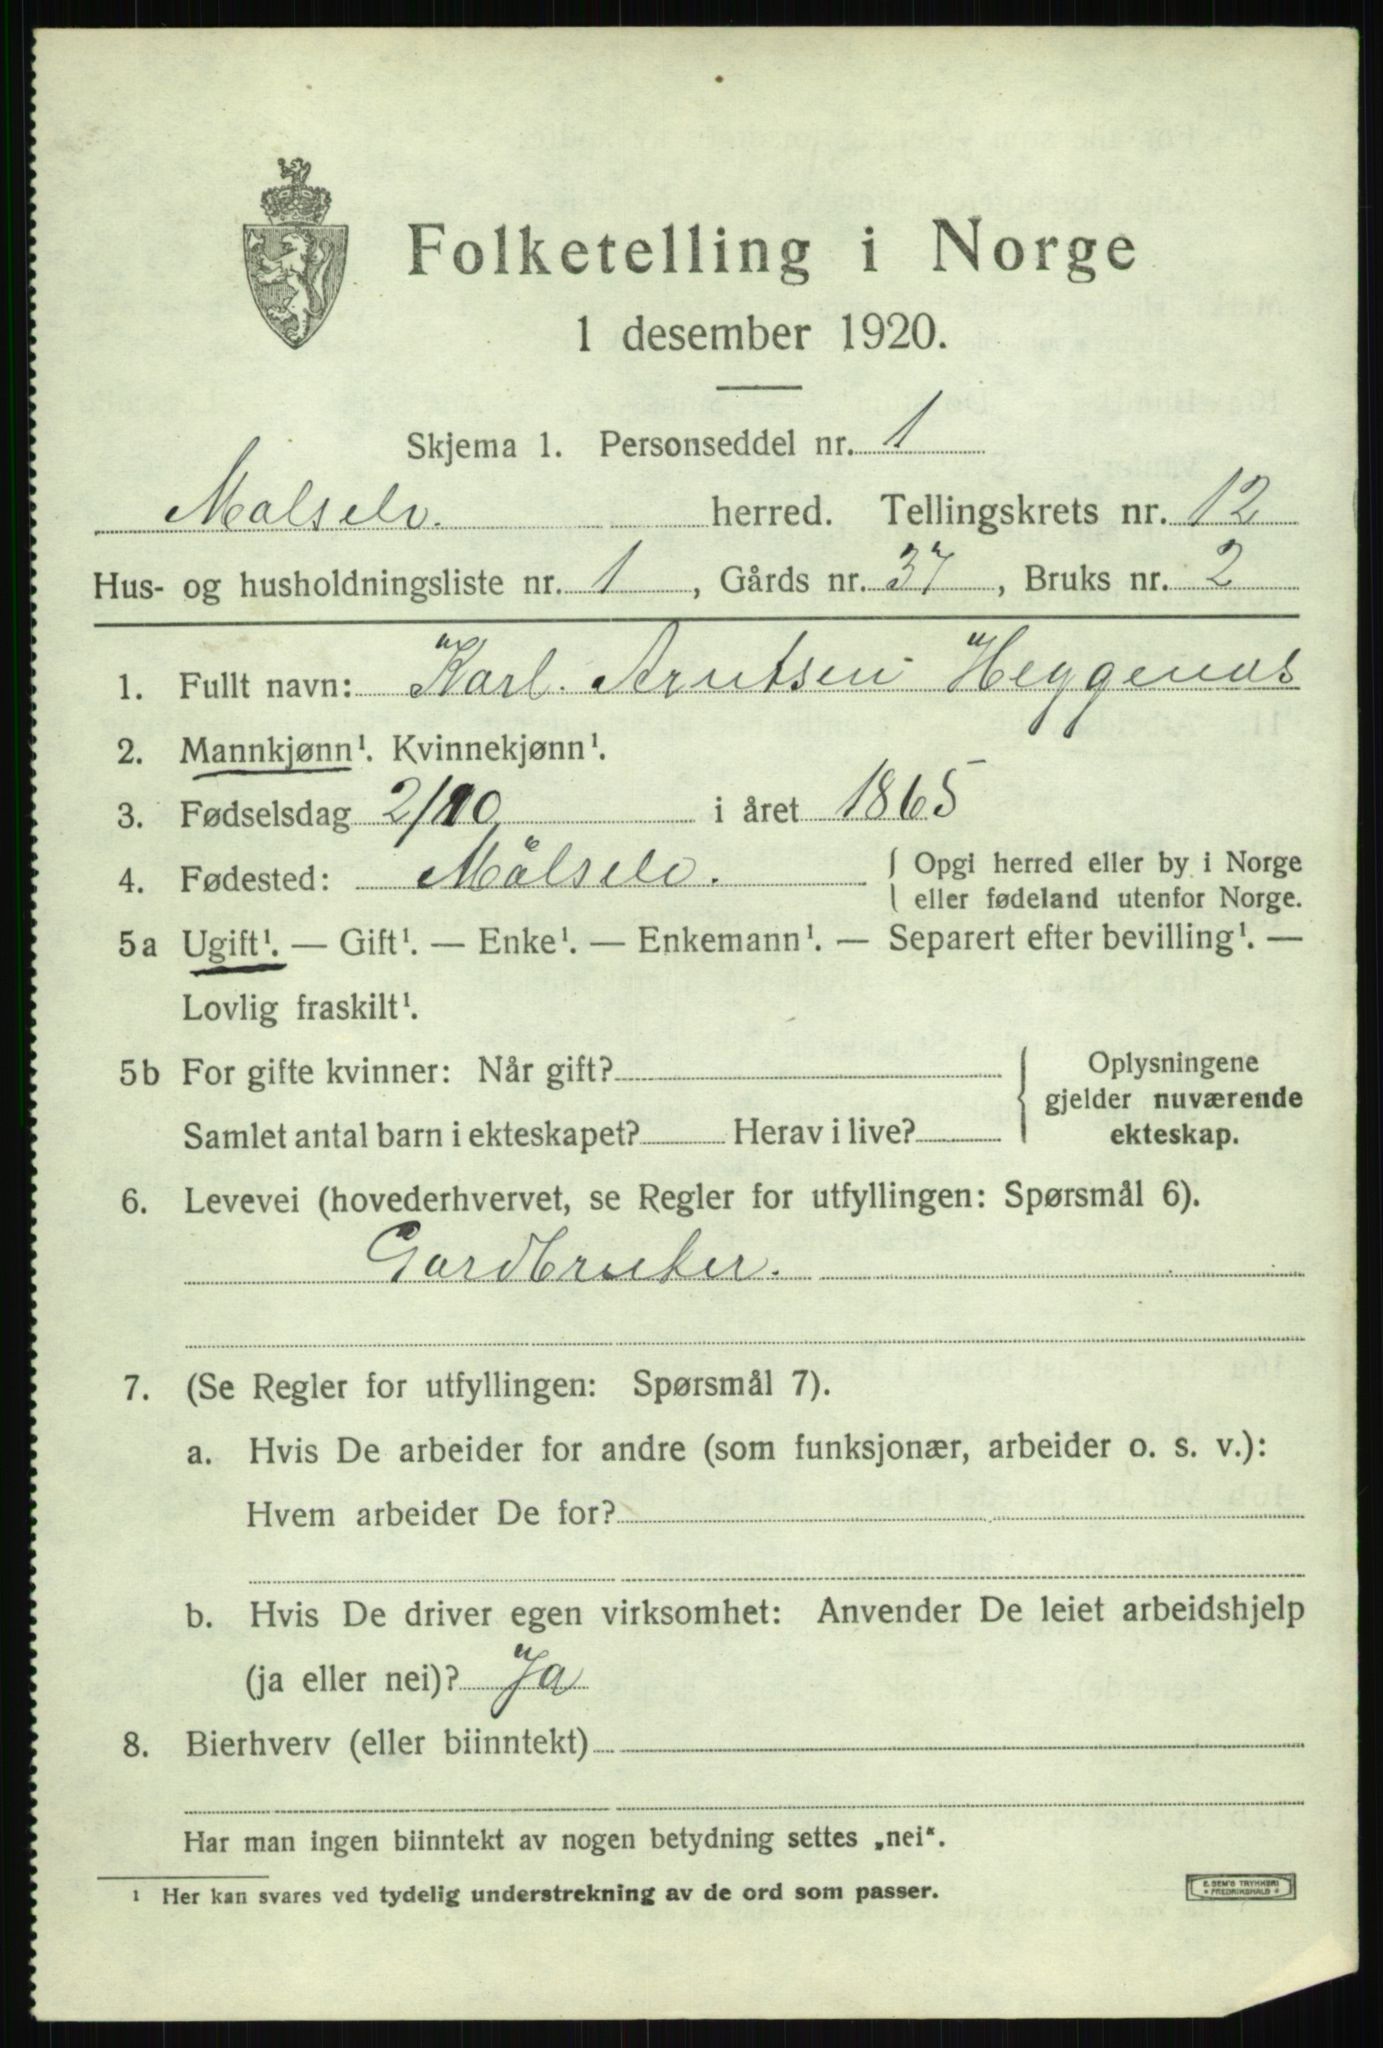 Folketelling i Norge
1 desember 1920.
Skjema 1. Personseddel nr. 1
Malselv. herred. Tellingskrets nr. 12
Hus- og husholdningsliste nr. 1, Gårds nr. 37, Bruks nr. 2
1. Fullt navn: Karl. Arntsen Heggenas
2. Mannkjønn¹. Kvinnekjønn¹.
3. Fødselsdag 2/10 i året 1865
4. Fødested: Målselv. { Opgi herred eller by i Norge
eller fødeland utenfor Norge.
5a Ugift¹. — Gift¹. — Enke¹. — Enkemann¹. — Separert efter bevilling¹. —
Lovlig fraskilt¹.
5b For gifte kvinner: Når gift?
Samlet antal barn i ekteskapet? Herav i live?
{ Oplysningene
gjelder nuværende
ekteskap.
6. Levevei (hovederhvervet, se Regler for utfyllingen: Spørsmål 6).
Gardbruker.
7. (Se Regler for utfyllingen: Spørsmål 7).
a. Hvis De arbeider for andre (som funksjonær, arbeider o. s. v.):
Hvem arbeider De for?
b. Hvis De driver egen virksomhet: Anvender De leiet arbeidshjelp
(ja eller nei)? Ja
8. Bierhverv (eller biinntekt)
Har man ingen biinntekt av nogen betydning settes „nei".
¹ Her kan svares ved tydelig understrekning av de ord som passer.
E. SEM'S TRYKKERI
* FREDRIKSHALD *